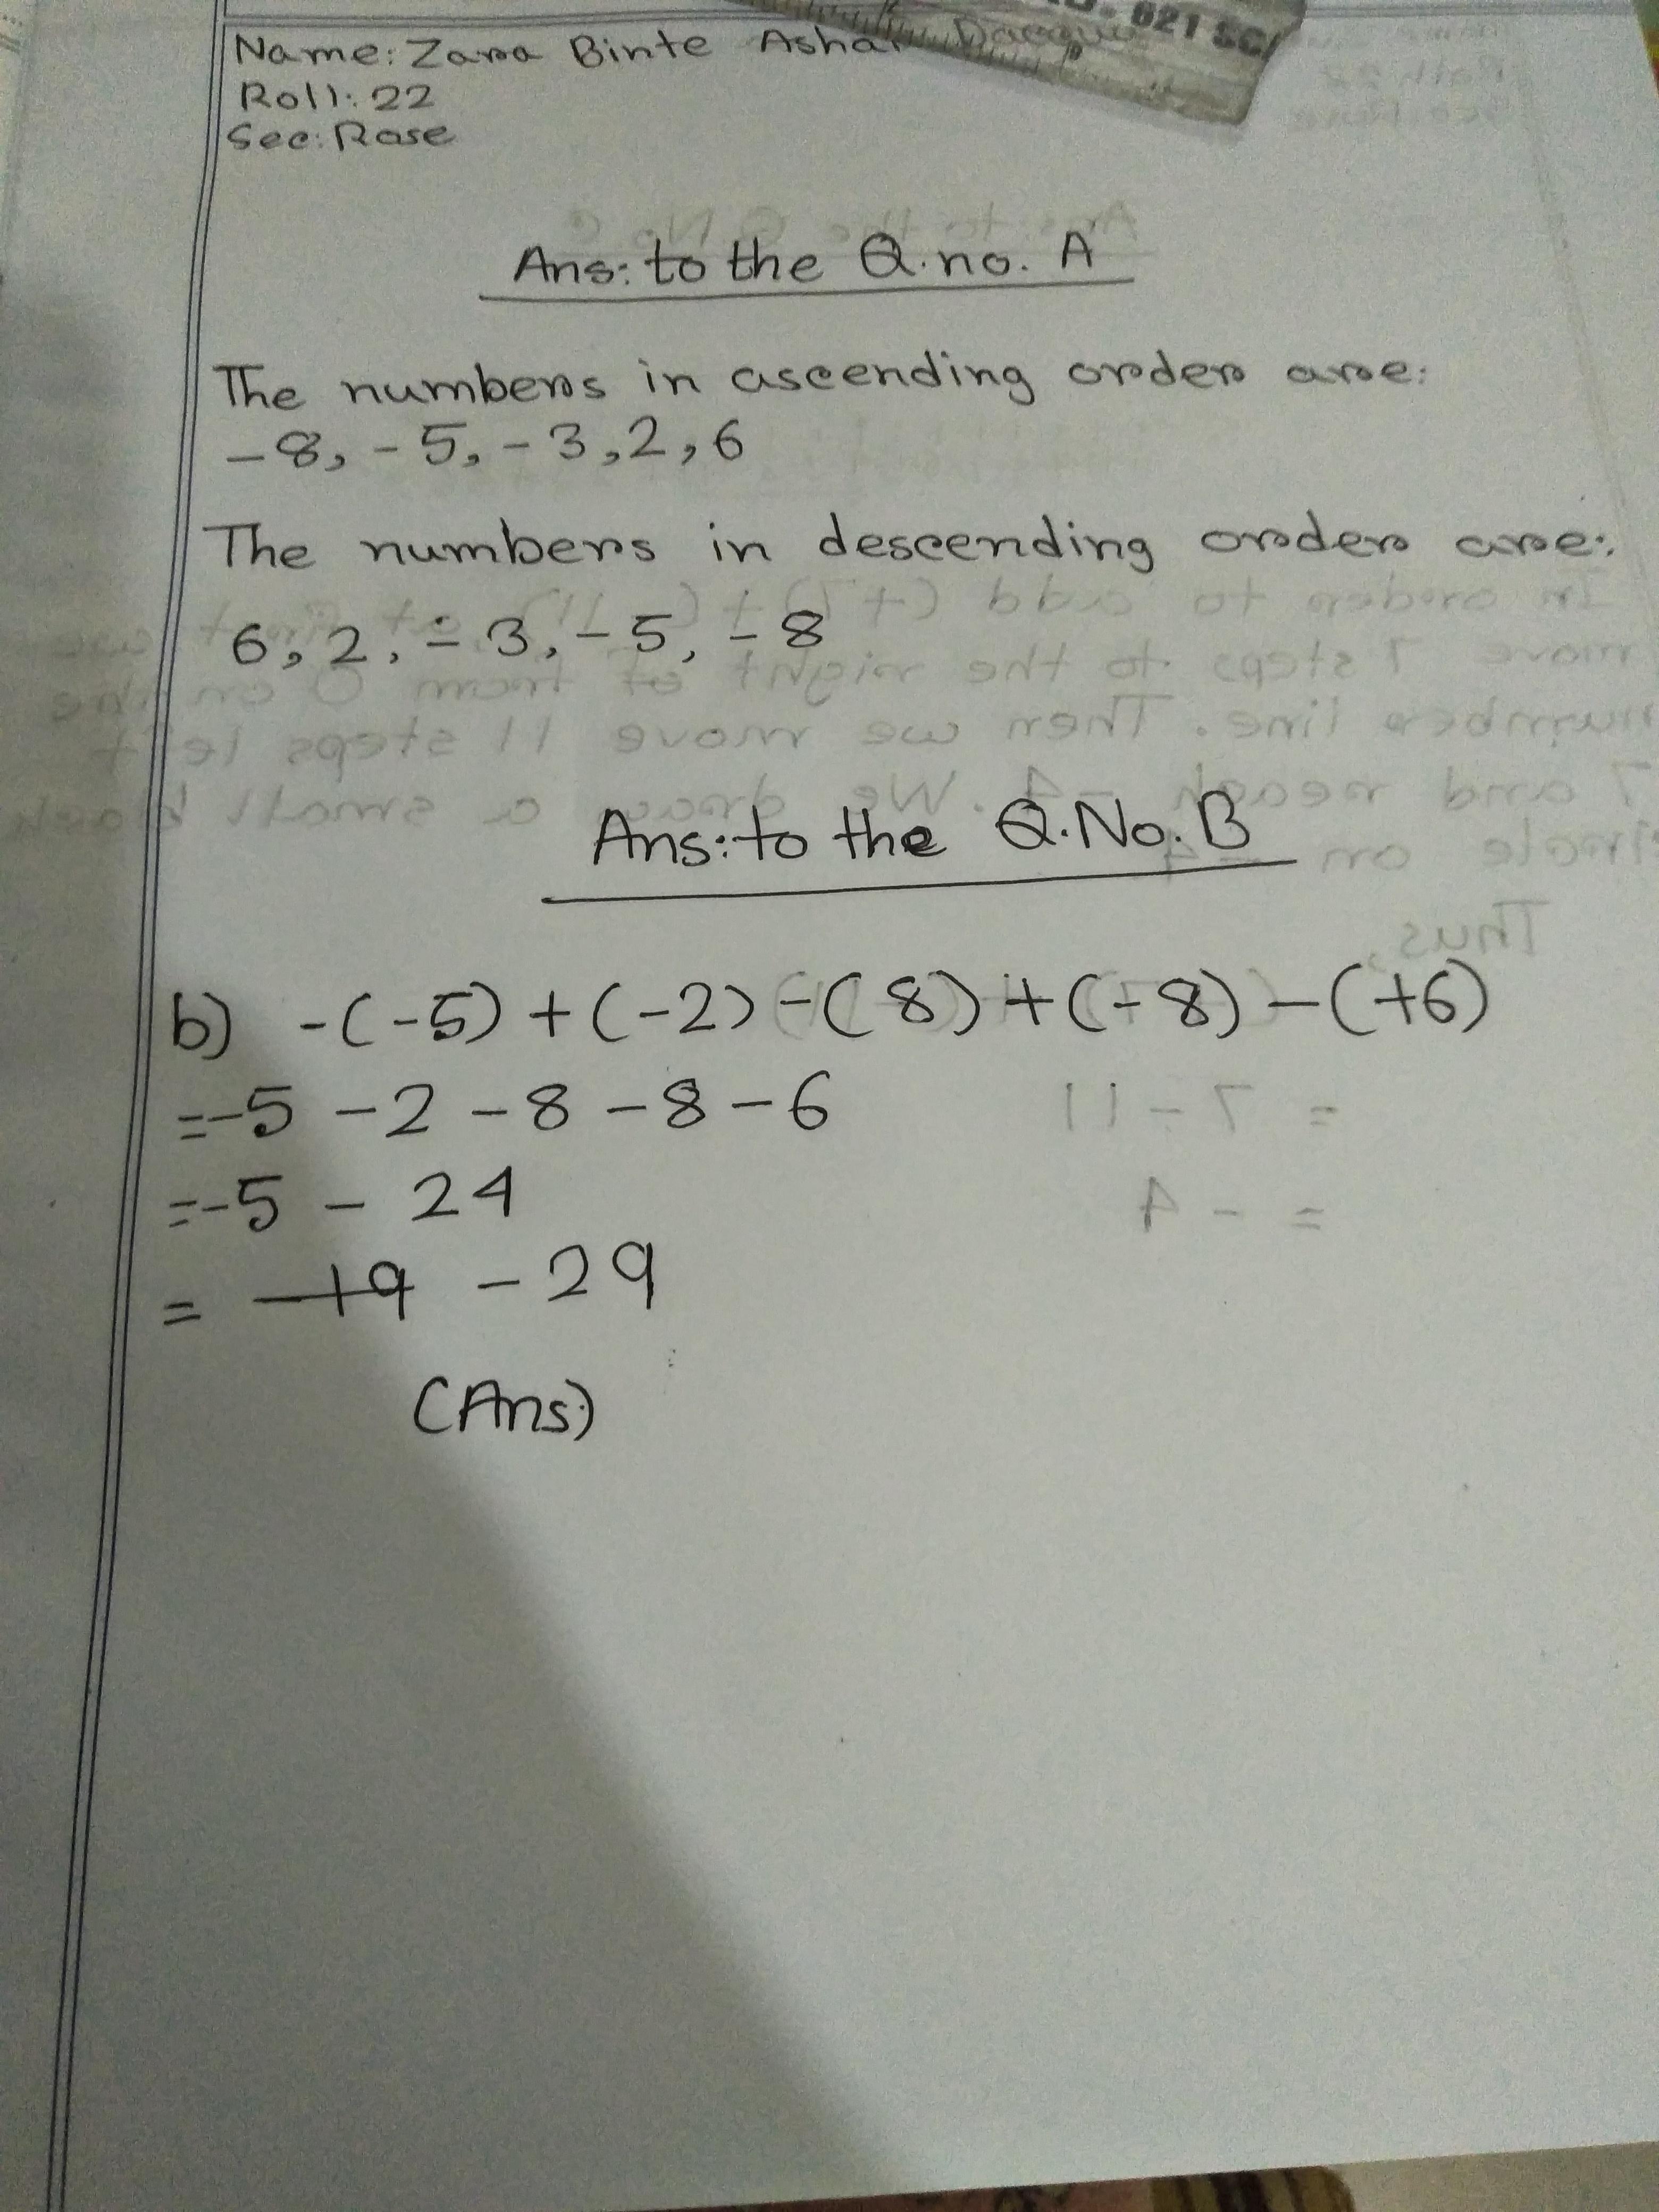 Name: Zara Binte Ashar
621 SC
Roll: 22
Sec: Rose
Ans: to the Q.no. A
The numbers in ascending order are:
-8, -5, -3, 2, 6
The numbers in descending order are:
6, 2, -3, -5, -8
Ans: to the Q.No. B
b) -(-5) + (-2) -(8) + (-8) - (+6)
=-5 - 2 - 8 - 8 - 6
=-5 - 24
= -19 -29
(Ans)